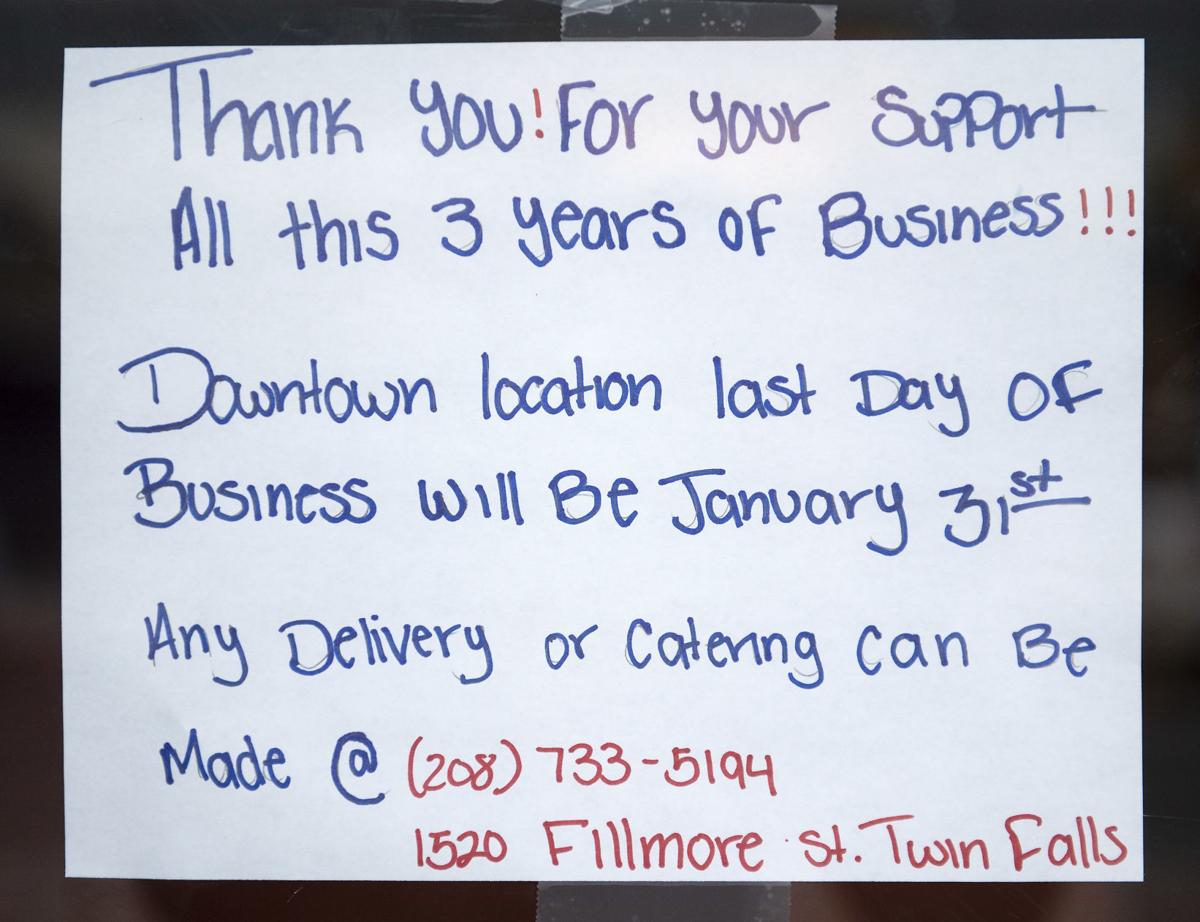 Thank you! For your Support
All this 3 years of Business!!!
Downtown location last Day OF
Business will Be January 31st
Any Delivery or Catering Can Be
Made @ (208) 733-5194
1520 Fillmore St. Twin Falls